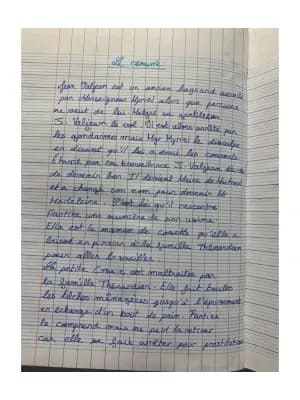 Le résumé
Jean Valjean est un ancien bagnard accueilli
par Monseigneur Myriel alors que personne
ne veut de lui. Malgré sa gentillesse
J. Valjean le vol. Il est alors arrêté par
les gendarmes mais Mgr Myriel le disculpe
en disant qu'il lui a donné les couverts.
par sa bienveillance J. Valjean décide
de devenir bon. Il devient Maire de
et a changé son nom pour devenir Mr
Madeleine. C'est là qu'il rencontre
Fantine une ouvrière de son usine.
Elle est la maman de Cosette qu'elle a
laissé en pension à la famille Thénardier
pour aller travailler.
La petite est maltraitée par
la famille Thénardier. Elle fait toutes
les tâches ménagères jusqu'à l'épuisement
en échange d'un bout de pain. Fantine
le comprend mais ne peut la retirer
car elle se fait arrêter pour prostitution